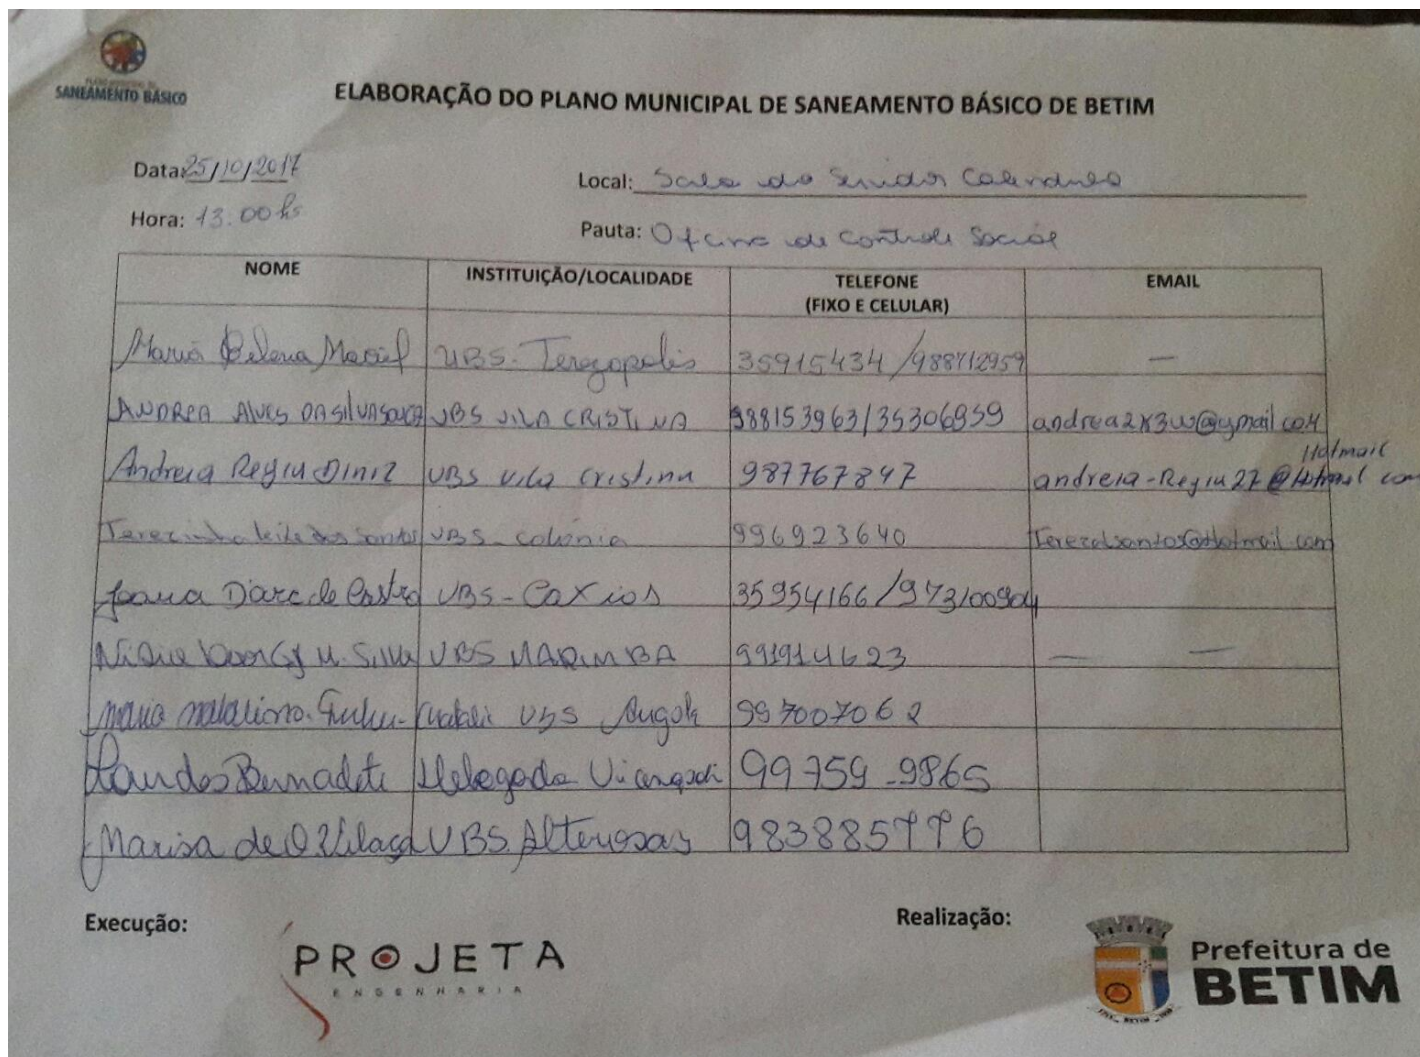 SANEAMENTO BÁSICO
ELABORAÇÃO DO PLANO MUNICIPAL DE SANEAMENTO BÁSICO DE BETIM
Data: 25/10/2017
Local: Sala do Servidor
Hora: 13:00 hs
Pauta: Oficina de Controle Social
NOME INSTITUIÇÃO/LOCALIDADE TELEFONE (FIXO E CELULAR) EMAIL
Maria Helena Maciel UBS-Terezopolis 35915434 / —
ANDREA ALVES DA SILVA SOUZA UBS VILA CRISTINA 988153963/35306959 andrea2x3w@gmail.com
Andreia Regia Diniz UBS Vila Cristina 987767847 Hotmail
andreia-Regia27@Hotmail com
Terezinha leite dos Santos UBS-colônia 996923640 Terezalsantos@Hotmail.com
Joana D'arc de Castro UBS-Caxias 35954166/973100904
M. Silva UBS MARIMBA 991914623 — —
UBS Angola 997007062
Lourdes Bernadete Delegada 99759-9865
Marisa de O. Vilaça UBS Alterosas 983885776
Execução:
Realização:
PROJETA
ENGENHARIA
Prefeitura de
BETIM